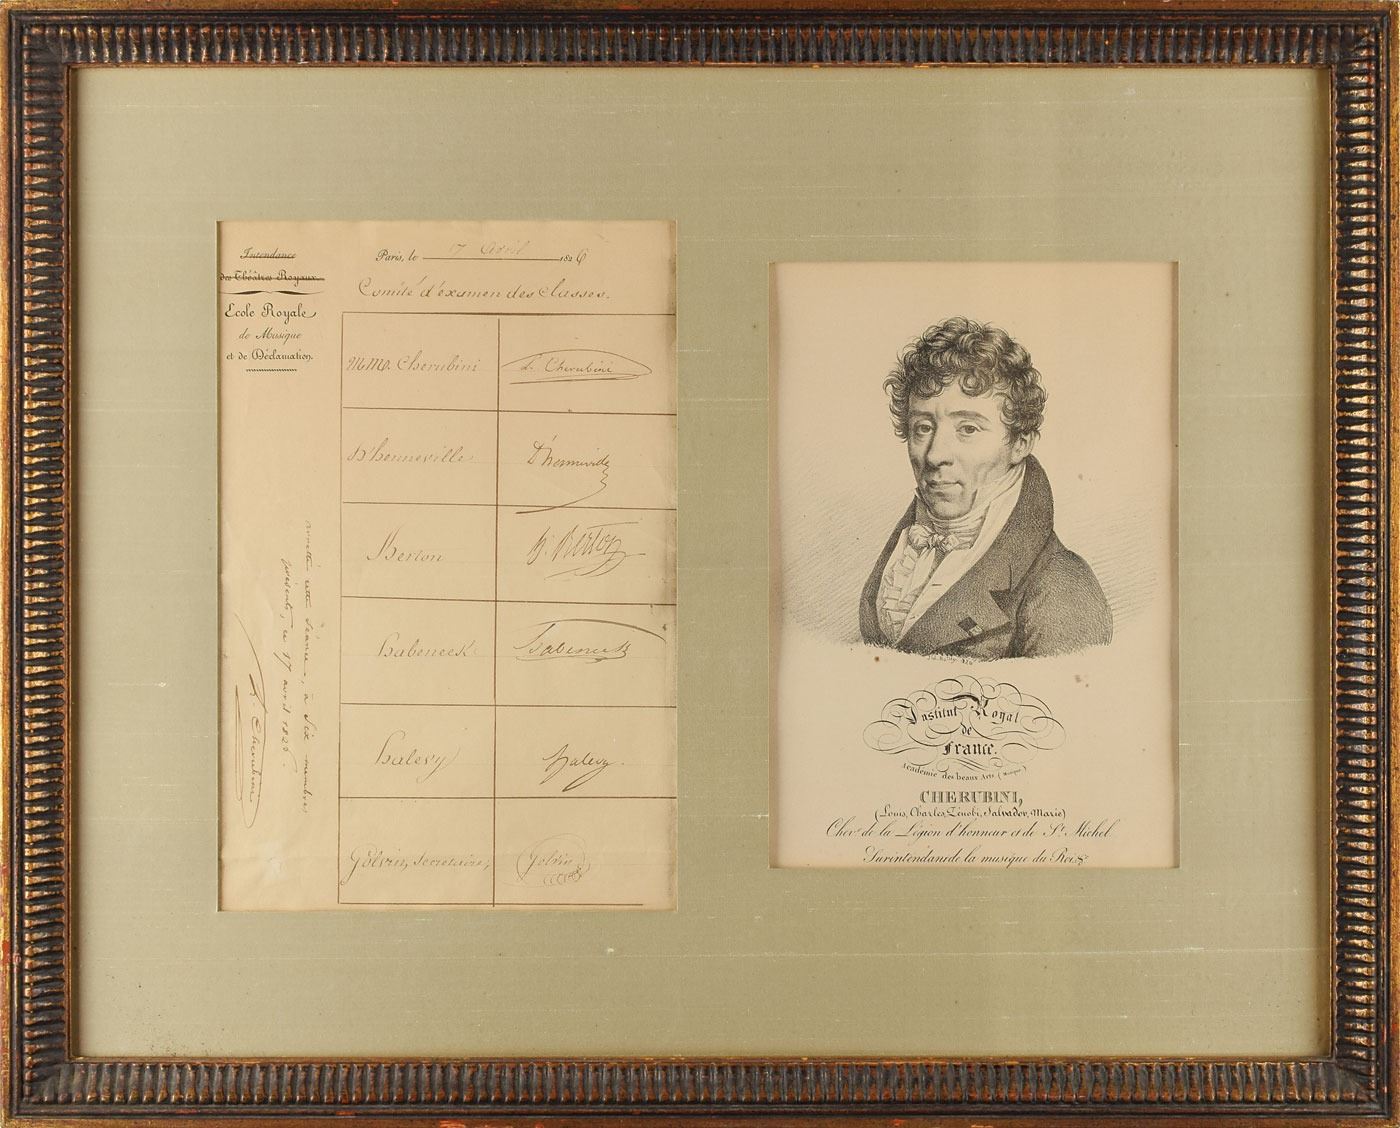 Intendance
des Théâtres Royaux
Ecole Royale
de Musique
et de Déclamation.
Paris, le 17 Avril 1826
Comité d'examen des Classes.
M.M. Cherubini
L. Cherubini
D'henneville
D'henneville
Berton
h. Berton
habeneck
habeneck
halevy
halevy
Golvin, Secretaire,
Golvin
arretté cette séance, à Six membres
présents, ce 17 avril 1826.
L. Cherubini
Institut Royal
de
France.
Académie des beaux Arts (Musique)
CHERUBINI,
(Louis, Charles, Zénobi, Salvador, Marie)
Cher. de la Légion d'honneur et de St. Michel
Surintendant de la musique du Roi &c.